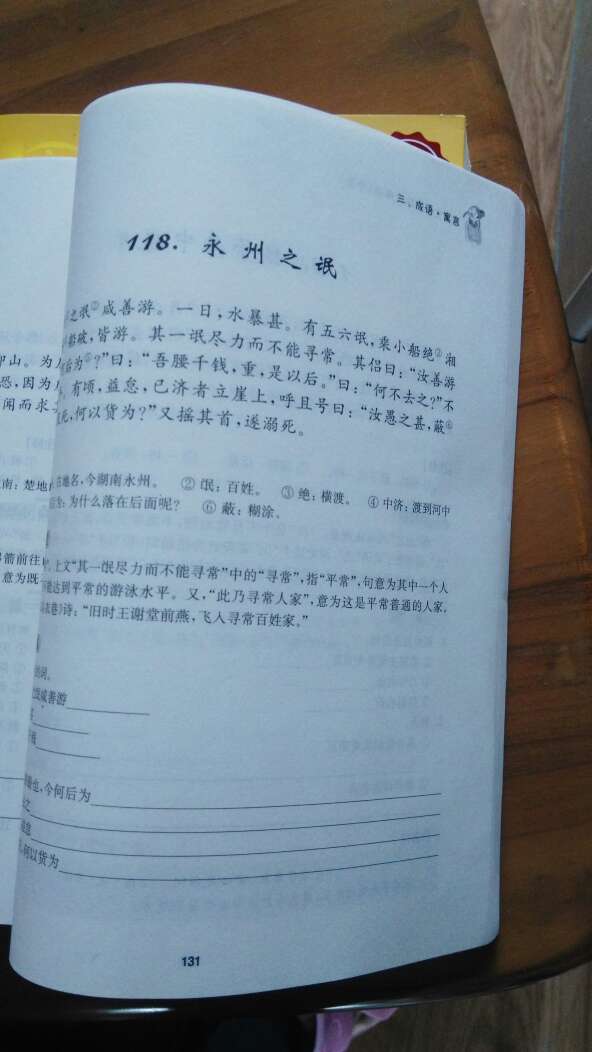 三、成语·寓言
118. 永州之氓
之氓②咸善游。一日，水暴甚。有五六氓，乘小船绝③湘
船破，皆游。其一氓尽力而不能寻常。其侣曰：“汝善游
后为⑤？”曰：“吾腰千钱，重，是以后。”曰：“何不去之？”不
。有顷，益怠，已济者立崖上，呼且号曰：“汝愚之甚，蔽⑥
死，何以货为？”又摇其首，遂溺死。
印山。为
恐，因为
闻而求
在地名，今湖南永州。 ②氓：百姓。 ③绝：横渡。 ④中济：渡到河中
为：为什么落在后面呢？ ⑥蔽：糊涂。
南：楚地
，上文“其一氓尽力而不能寻常”中的“寻常”，指“平常”，句意为其中一个人
能达到平常的游泳水平。又，“此乃寻常人家”，意为这是平常普通的人家。
巷》诗：“旧时王谢堂前燕，飞人寻常百姓家。”
弓箭前往
意为既
词。
咸善游
也，今何后为
之
益怠
何以货为
131